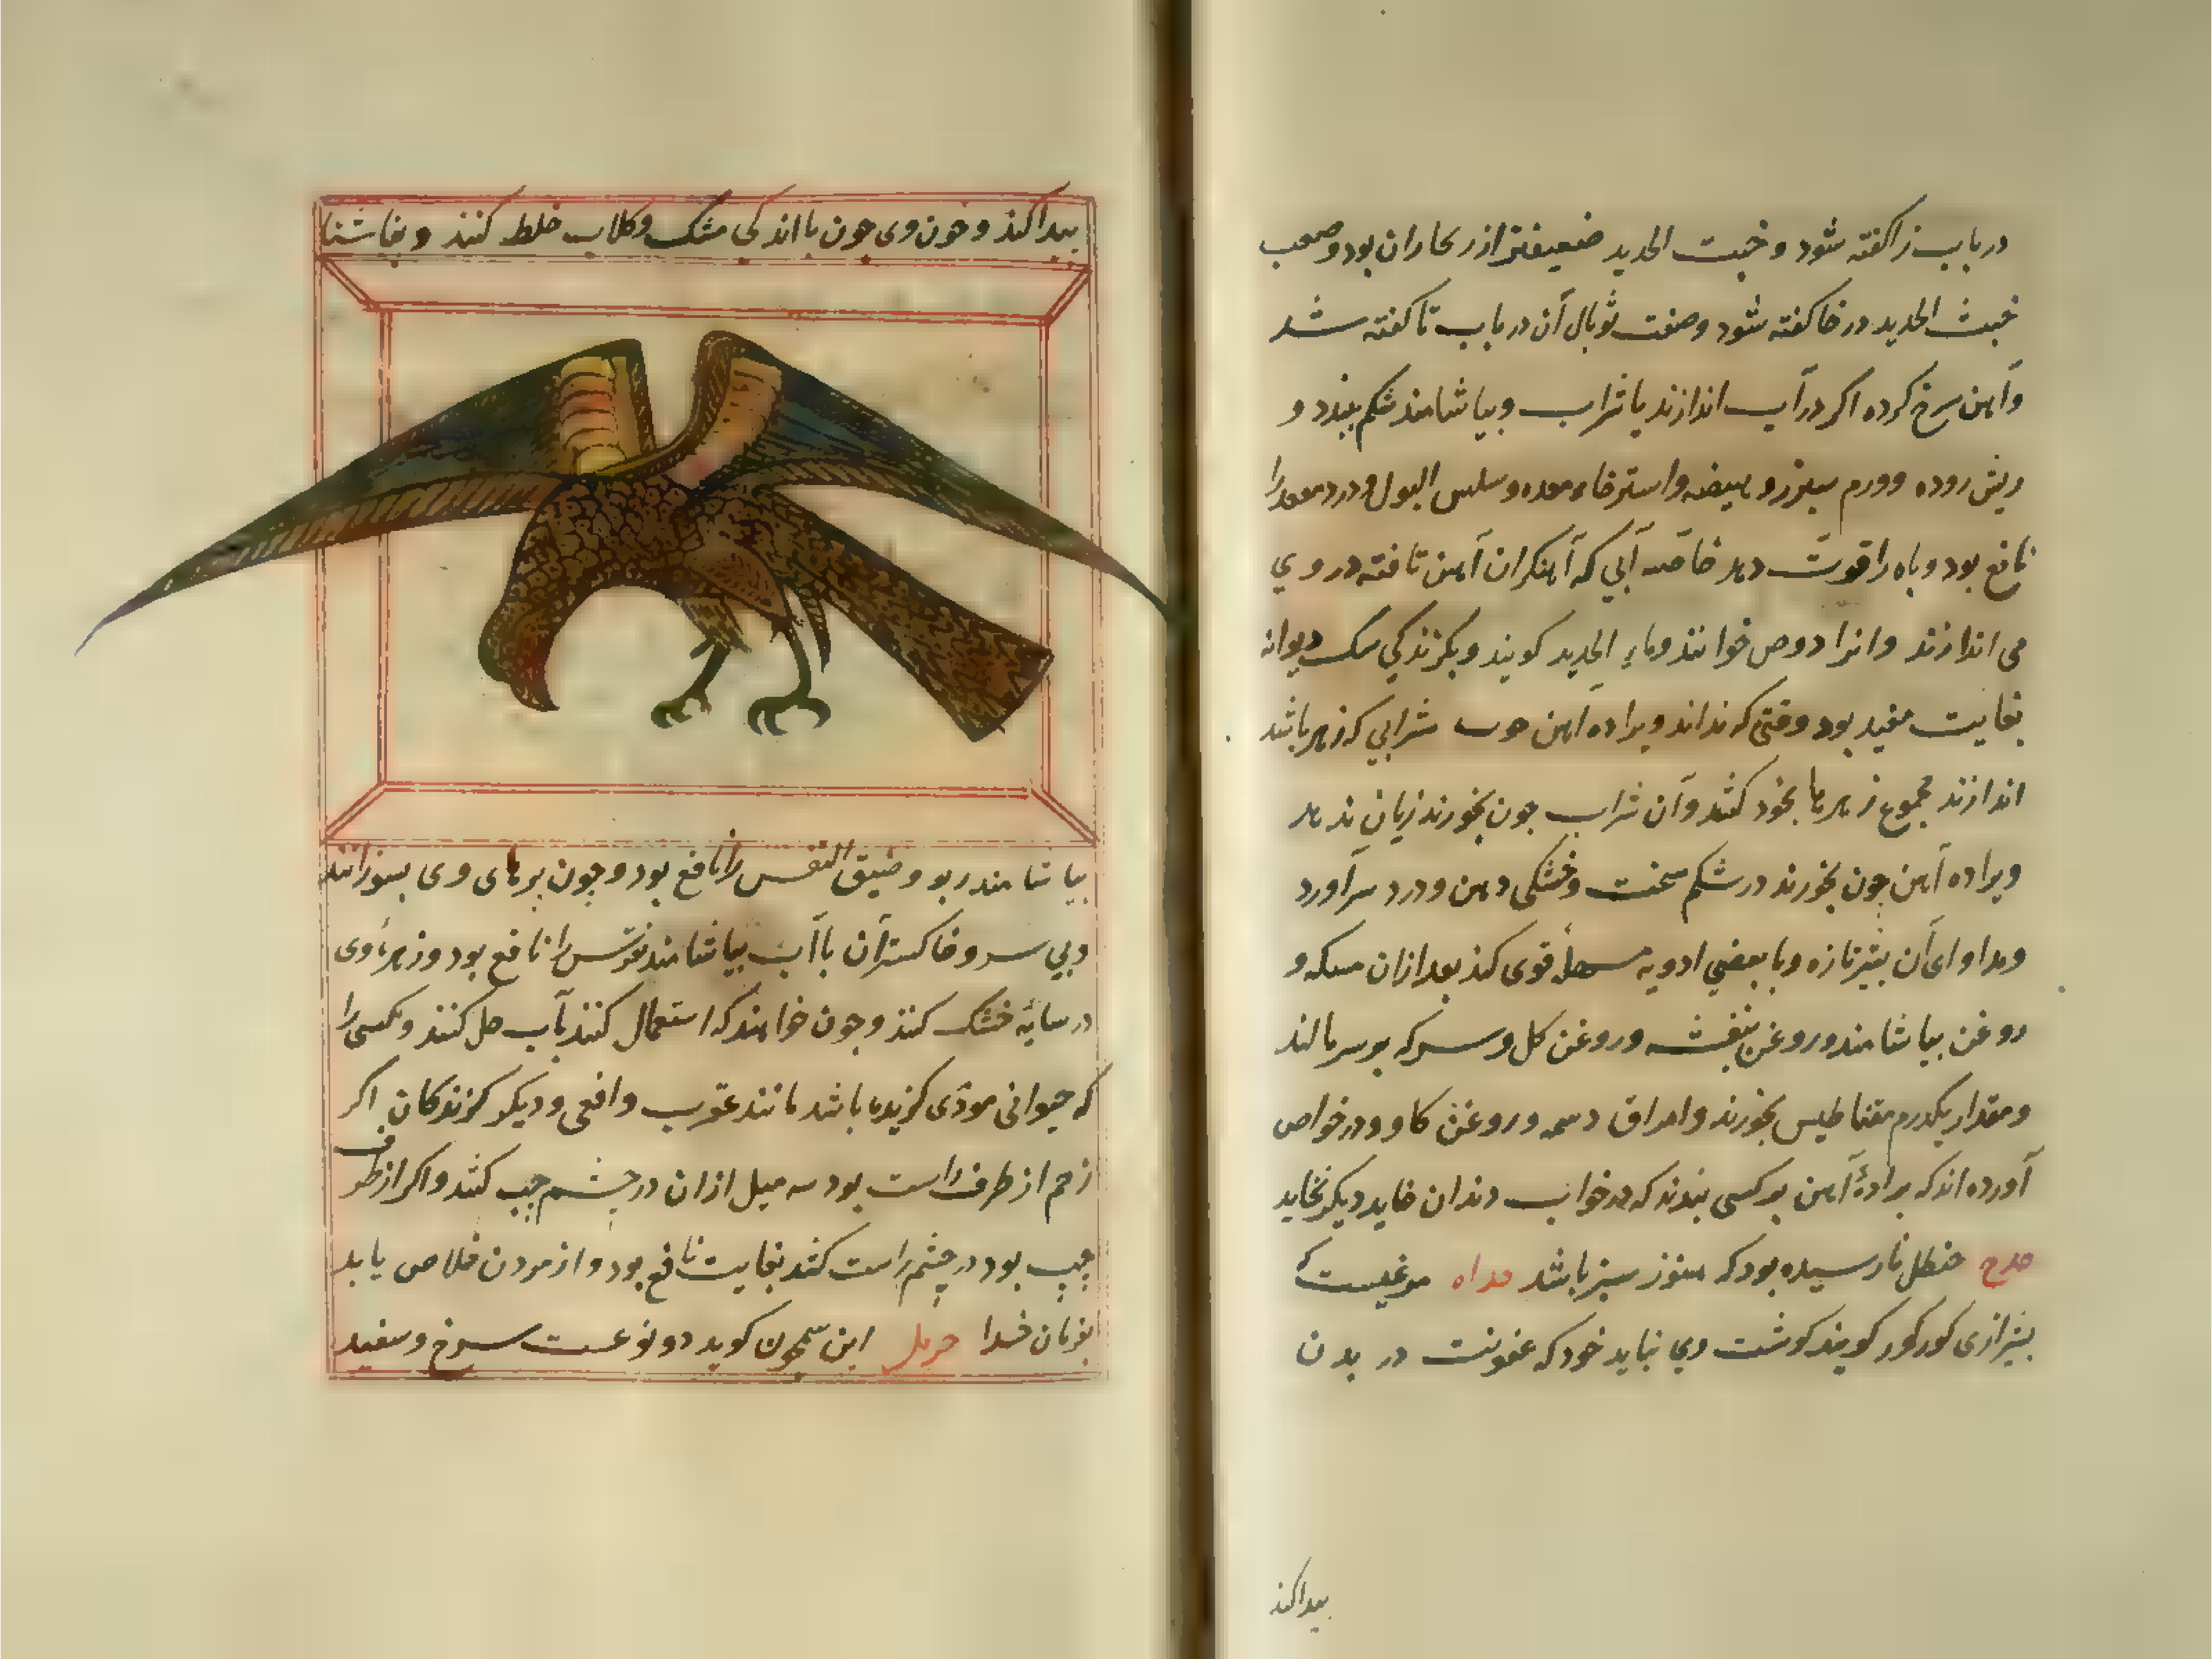 در باب زا کفته شود و خبث الحدید ضعیفتر از زنجار آن بود و صعب
خبث الحدید در خا کفته شود و صفت توبال آن در باب تا کفته شد
و آهن سرخ کرده اکر در آب اندازند یا شراب و بیاشامند شکم ببندد و
ریش روده و ورم سپرز و هیضه و استرخاء معده و سلس البول و درد معد را
نافع بود و باه را قوت دهد خاصه آبی که آهنکران آهن تافته در وی
می اندازند و انرا دوص خوانند و ماء الحدید کویند و بکزندکی سک دیوانه
بغایت مفید بود وقتی که نداند و براده آهن چون شرابی که زهر باشد
اندازند مجموع زهرها بخود کشد و آن شراب چون بخورند زیان ندهد
و براده آهن چون بخورند در شکم سخت و خشکی دهن و درد سر آورد
و مداوای آن بشیر تازه و با بعضی ادویه مسهل قوی کند بعد ازان مسکه و
روغن بیاشامند و روغن بنفشه و روغن کل و سرکه بر سر مالند
و مقدار یکدرم مغناطیس بخورند و امراق دسمه و روغن کاو و در خواص
آورده اند که براده آهن بر کسی بندند که در خواب دندان خاید دیکر نخاید
حدج حنظل نارسیده بود که هنوز سبز باشد حداه مرغیست که
بشیرازی کورکور کویند کوشت وی نباید خورد که عفونت در بدن
بیدا کند
بیدا کند و خون وی چون با اندکی مشک و کلاب خلط کنند و بناشتا
بیاشامند ربو و ضیق النفس را نافع بود و چون برهای وی بسوزانند
و بی سر و خاکستر آن با آب بیاشامند نقرس را نافع بود و زهرهٔ وی
در سایه خشک کنند و چون خواهند که استعمال کنند بآب حل کنند و کسی را
که حیوانی موذی کزیده باشد مانند عقرب و افعی و دیکر کزندکان اکر
زخم از طرف راست بود سه میل ازان در چشم چب کشد و اکر از طرف
چب بود در چشم راست کشد بغایت نافع بود و از مردن خلاص یابد
بفرمان خدا حرمل ابن سمجون کوید دو نوعست سرخ و سفید